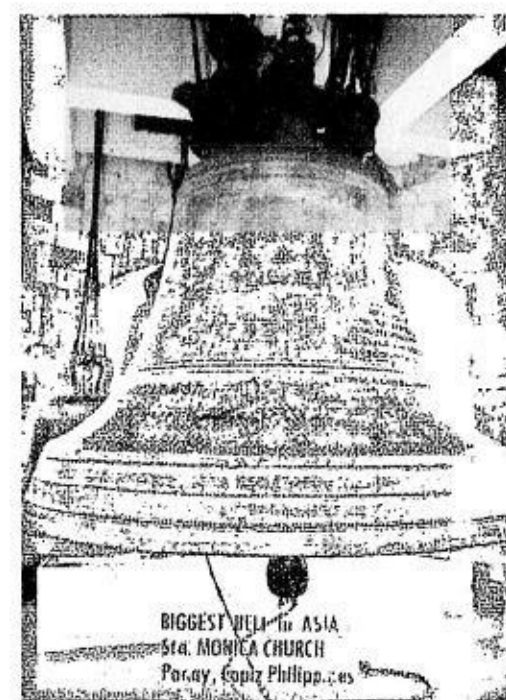 BIGGEST BELL in ASIA
Sta. MONICA CHURCH
Panay, Capiz Philippines